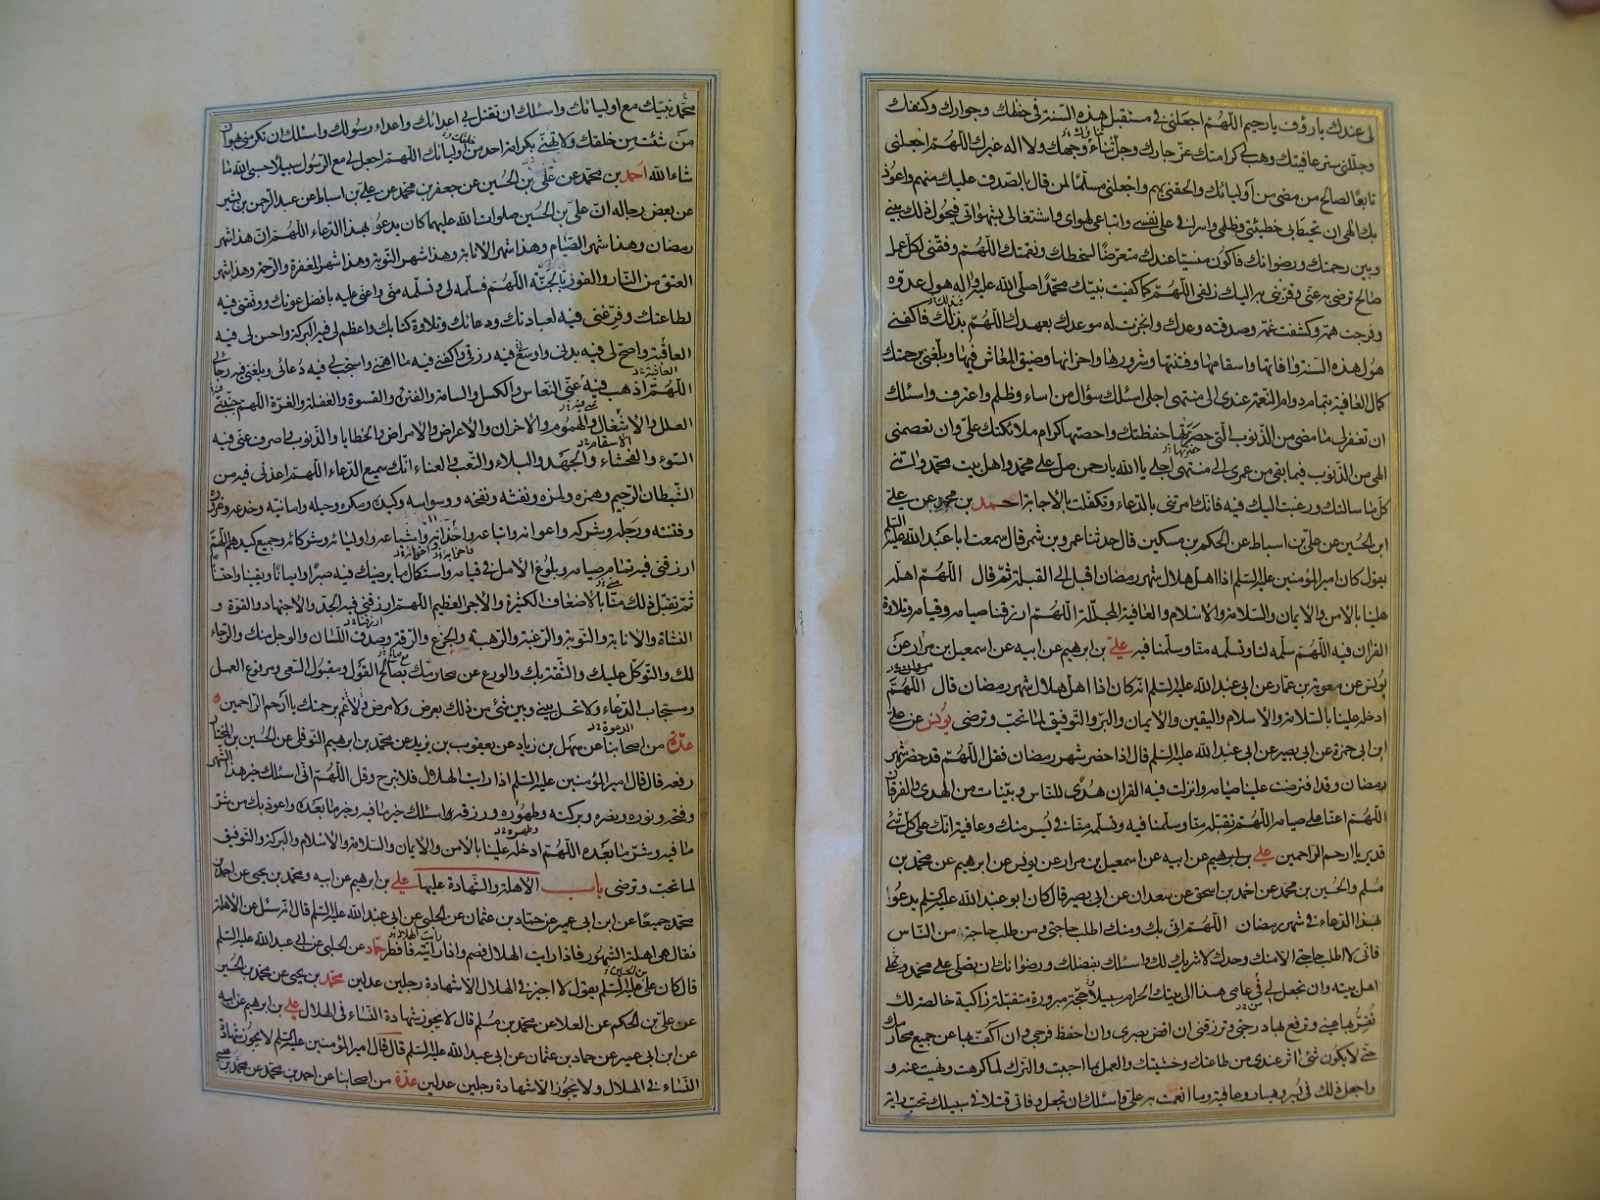 لى عندك يا رؤف يا رحيم اللهم اجعلنى فى مستقبل هذه السنة فى حفظك وجوارك وكنفك
وجللنى ستر عافيتك وهب لى كرامتك عز جارك وجل ثناء وجهك ولا اله غيرك اللهم اجعلنى
تابعا لصالح من مضى من اوليائك والحقنى بهم واجعلنى مسلما لمن قال بالصدق عليك منهم واعوذ
بك الهى ان تحيط بى خطيئتى وظلمى واسرافى على نفسى واتباعى لهواى واشتغالى بشهواتى فيحول ذلك بينى
وبين رحمتك ورضوانك فاكون منسيا عندك متعرضا لسخطك ونقمتك اللهم وفقنى لكل عمل
صالح ترضى به عنى وقربنى به اليك زلفى اللهم كما كفيت نبيك محمدا صلى الله عليه واله هول عدوه
وفرجت همه وكشفت غمه وصدقته وعدك وانجزت له موعدك بعهدك اللهم بذلك فاكفنى
هول هذه السنة وافاتها واسقامها وفتنتها وشرورها واحزانها وضيق المعاش فيها وبلغنى برحمتك
كمال العافية بتمام دوام النعمة عندى الى منتهى اجلى اسئلك سؤال من اساء وظلم واعترف واسئلك
ان تغفر لى ما مضى من الذنوب التى حصرتها حفظتك واحصتها كرام ملائكتك على وان تعصمنى
الهى من الذنوب فيما بقى من عمرى الى منتهى اجلى يا الله يا رحمن صل على محمد واهل بيت محمد واتنى
كل ما سالتك ورغبت اليك فيه فانك امرتنى بالدعاء وتكفلت بالاجابة احمد بن محمد عن على
ابن الحسين عن على بن اسباط عن الحكم بن مسكين قال حدثنا عمرو بن شمر قال سمعت ابا عبد الله عليه السلم
يقول كان امير المؤمنين عليه السلم اذا اهل هلال شهر رمضان اقبل الى القبلة ثم قال اللهم اهله
علينا بالامن والايمان والسلامة والاسلام والعافية المجللة اللهم ارزقنا صيامه وقيامه وتلاوة
القران فيه اللهم سلمه لنا وتسلمه منا وسلمنا فيه على بن ابرهيم عن ابيه عن اسمعيل بن مرار عن
يونس عن معوية بن عمار عن ابى عبد الله عليه السلم انه كان اذا اهل هلال شهر رمضان قال اللهم
ادخله علينا بالسلامة والاسلام واليقين والايمان والبر والتوفيق لما تحب وترضى يونس عن على
ابن ابى حمزة عن ابى بصير عن ابى عبد الله عليه السلم قال اذا حضر شهر رمضان فقل اللهم قد حضر شهر
رمضان وقد افترضت علينا صيامه وانزلت فيه القران هدى للناس وبينات من الهدى والفرقان
اللهم اعنا على صيامه اللهم تقبله منا وسلمنا فيه وتسلمه منا فى يسر منك وعافية انك على كل شئ
قدير يا ارحم الراحمين على بن ابرهيم عن ابيه عن اسمعيل بن مرار عن يونس عن ابرهيم عن محمد بن
مسلم والحسين بن محمد عن احمد بن اسحق عن سعدان عن ابى بصير قال كان ابو عبد الله عليه السلم يدعوا
بهذا الدعاء فى شهر رمضان اللهم انى بك ومنك اطلب حاجتى ومن طلب حاجة من الناس
فانى لا اطلب حاجتى الا منك وحدك لا شريك لك واسئلك بفضلك ورضوانك ان تصلى على محمد وعلى
اهل بيته وان تجعل لى فى عامى هذا الى بيتك الحرام سبيلا حجة مبرورة متقبلة زاكية خالصة لك
تقر بها عينى وترفع بها درجتى وترزقنى ان اغض بصرى وان احفظ فرجى وان اكف بها عن جميع محارمك
حتى لا يكون شئ اثر عندى من طاعتك وخشيتك والعمل بما احببت والترك لما كرهت ونهيت عنه و
واجعل ذلك فى يسر ويسار وعافية وما انعمت به على واسئلك ان تجعل وفاتى قتلا فى سبيلك تحت راية
محمد نبيك مع اوليائك واسئلك ان تقتل بى اعدائك واعداء رسولك واسئلك ان تكرمنى بهوان
من شئت من خلقك ولا تهنى بكرامة احد من اوليائك اللهم اجعل لى مع الرسول سبيلا حسبى الله ما
شاء الله احمد بن محمد عن على بن الحسين عن جعفر بن محمد عن على بن اسباط عن عبد الرحمن بن بشير
عن بعض رجاله ان على بن الحسين صلوات الله عليهما كان يدعو بهذا الدعاء اللهم ان هذا شهر
رمضان وهذا شهر الصيام وهذا شهر الانابة وهذا شهر التوبة وهذا شهر المغفرة والرحمة وهذا شهر
العتق من النار والفوز بالجنة اللهم فسلمه لى وتسلمه منى واعنى عليه بافضل عونك ووفقنى فيه
لطاعتك وفرغنى فيه لعبادتك ودعائك وتلاوة كتابك واعظم لى فيه البركة واحسن لى فيه
العاقبة واصح لى فيه بدنى واوسع فيه رزقى واكفنى فيه ما اهمنى واستجب لى فيه دعائى وبلغنى فيه رجائى
اللهم اذهب فيه عنى النعاس والكسل والسامة والفترة والقسوة والغفلة والغرة اللهم جنبنى
العلل والاشغال والهموم والاحزان والاعراض والامراض والخطايا والذنوب واصرف عنى فيه
السوء والفحشاء والجهد والبلاء والتعب والعناء انك سميع الدعاء اللهم اعذنى فيه من
الشيطان الرجيم وهمزه ولمزه ونفثه ونفخه ووسواسه وكيده ومكره وحيله وامانيه وخدعه وغروره
وفتنته ورجله وشركه واعوانه واتباعه واخدانه واشياعه واوليائه وشركائه وجميع كيدهم اللهم
ارزقنى فيه تمام صيامه وبلوغ الامل فى قيامه واستكمال ما يرضيك فيه صبرا وايمانا ويقينا واحتسابا
ثم تقبل ذلك منا بالاضعاف الكثيرة والاجر العظيم اللهم ارزقنى فيه الجد والاجتهاد والقوة و
النشاط والانابة والتوبة والرغبة والرهبة والجزع والرقة وصدق اللسان والوجل منك والرجاء
لك والتوكل عليك والثقة بك والورع عن محارمك بصالح القول ومقبول السعى ومرفوع العمل
ومستجاب الدعاء ولا تحل بينى وبين شئ من ذلك بعرض ولا مرض ولا غم برحمتك يا ارحم الراحمين
عدة من اصحابنا عن سهل بن زياد عن يعقوب بن يزيد عن محمد بن ابرهيم النوفلى عن الحسين بن المختار
رفعه قال قال امير المؤمنين عليه السلم اذا رايت الهلال فلا تبرح وقل اللهم انى اسئلك خير هذا الشهر
وفتحه ونوره ونصره وبركته وطهوره ورزقه واسئلك خير ما فيه وخير ما بعده واعوذ بك من شر
ما فيه وشر ما بعده اللهم ادخله علينا بالامن والايمان والسلامة والاسلام والبركة والتوفيق
لما تحب وترضى باب الاهلة والشهادة عليها على بن ابرهيم عن ابيه ومحمد بن يحيى عن احمد بن
محمد جميعا عن ابن ابى عمير عن حماد بن عثمان عن الحلبى عن ابى عبد الله عليه السلم قال انه سئل عن الاهلة
فقال هى اهلة الشهور فاذا رايت الهلال فصم واذا رايته فافطر حماد عن الحلبى عن ابى عبد الله عليه السلم
قال كان على عليه السلم يقول لا اجيز فى الهلال الا شهادة رجلين عدلين محمد بن يحيى عن محمد بن الحسين
عن على بن الحكم عن العلا عن محمد بن مسلم قال لا يجوز شهادة النساء فى الهلال على بن ابرهيم عن ابيه
عن ابن ابى عمير عن حماد بن عثمان عن ابى عبد الله عليه السلم قال قال امير المؤمنين عليه السلم لا يجوز شهادة
النساء فى الهلال ولا يجوز الا شهادة رجلين عدلين عدة من اصحابنا عن احمد بن محمد عن محمد بن